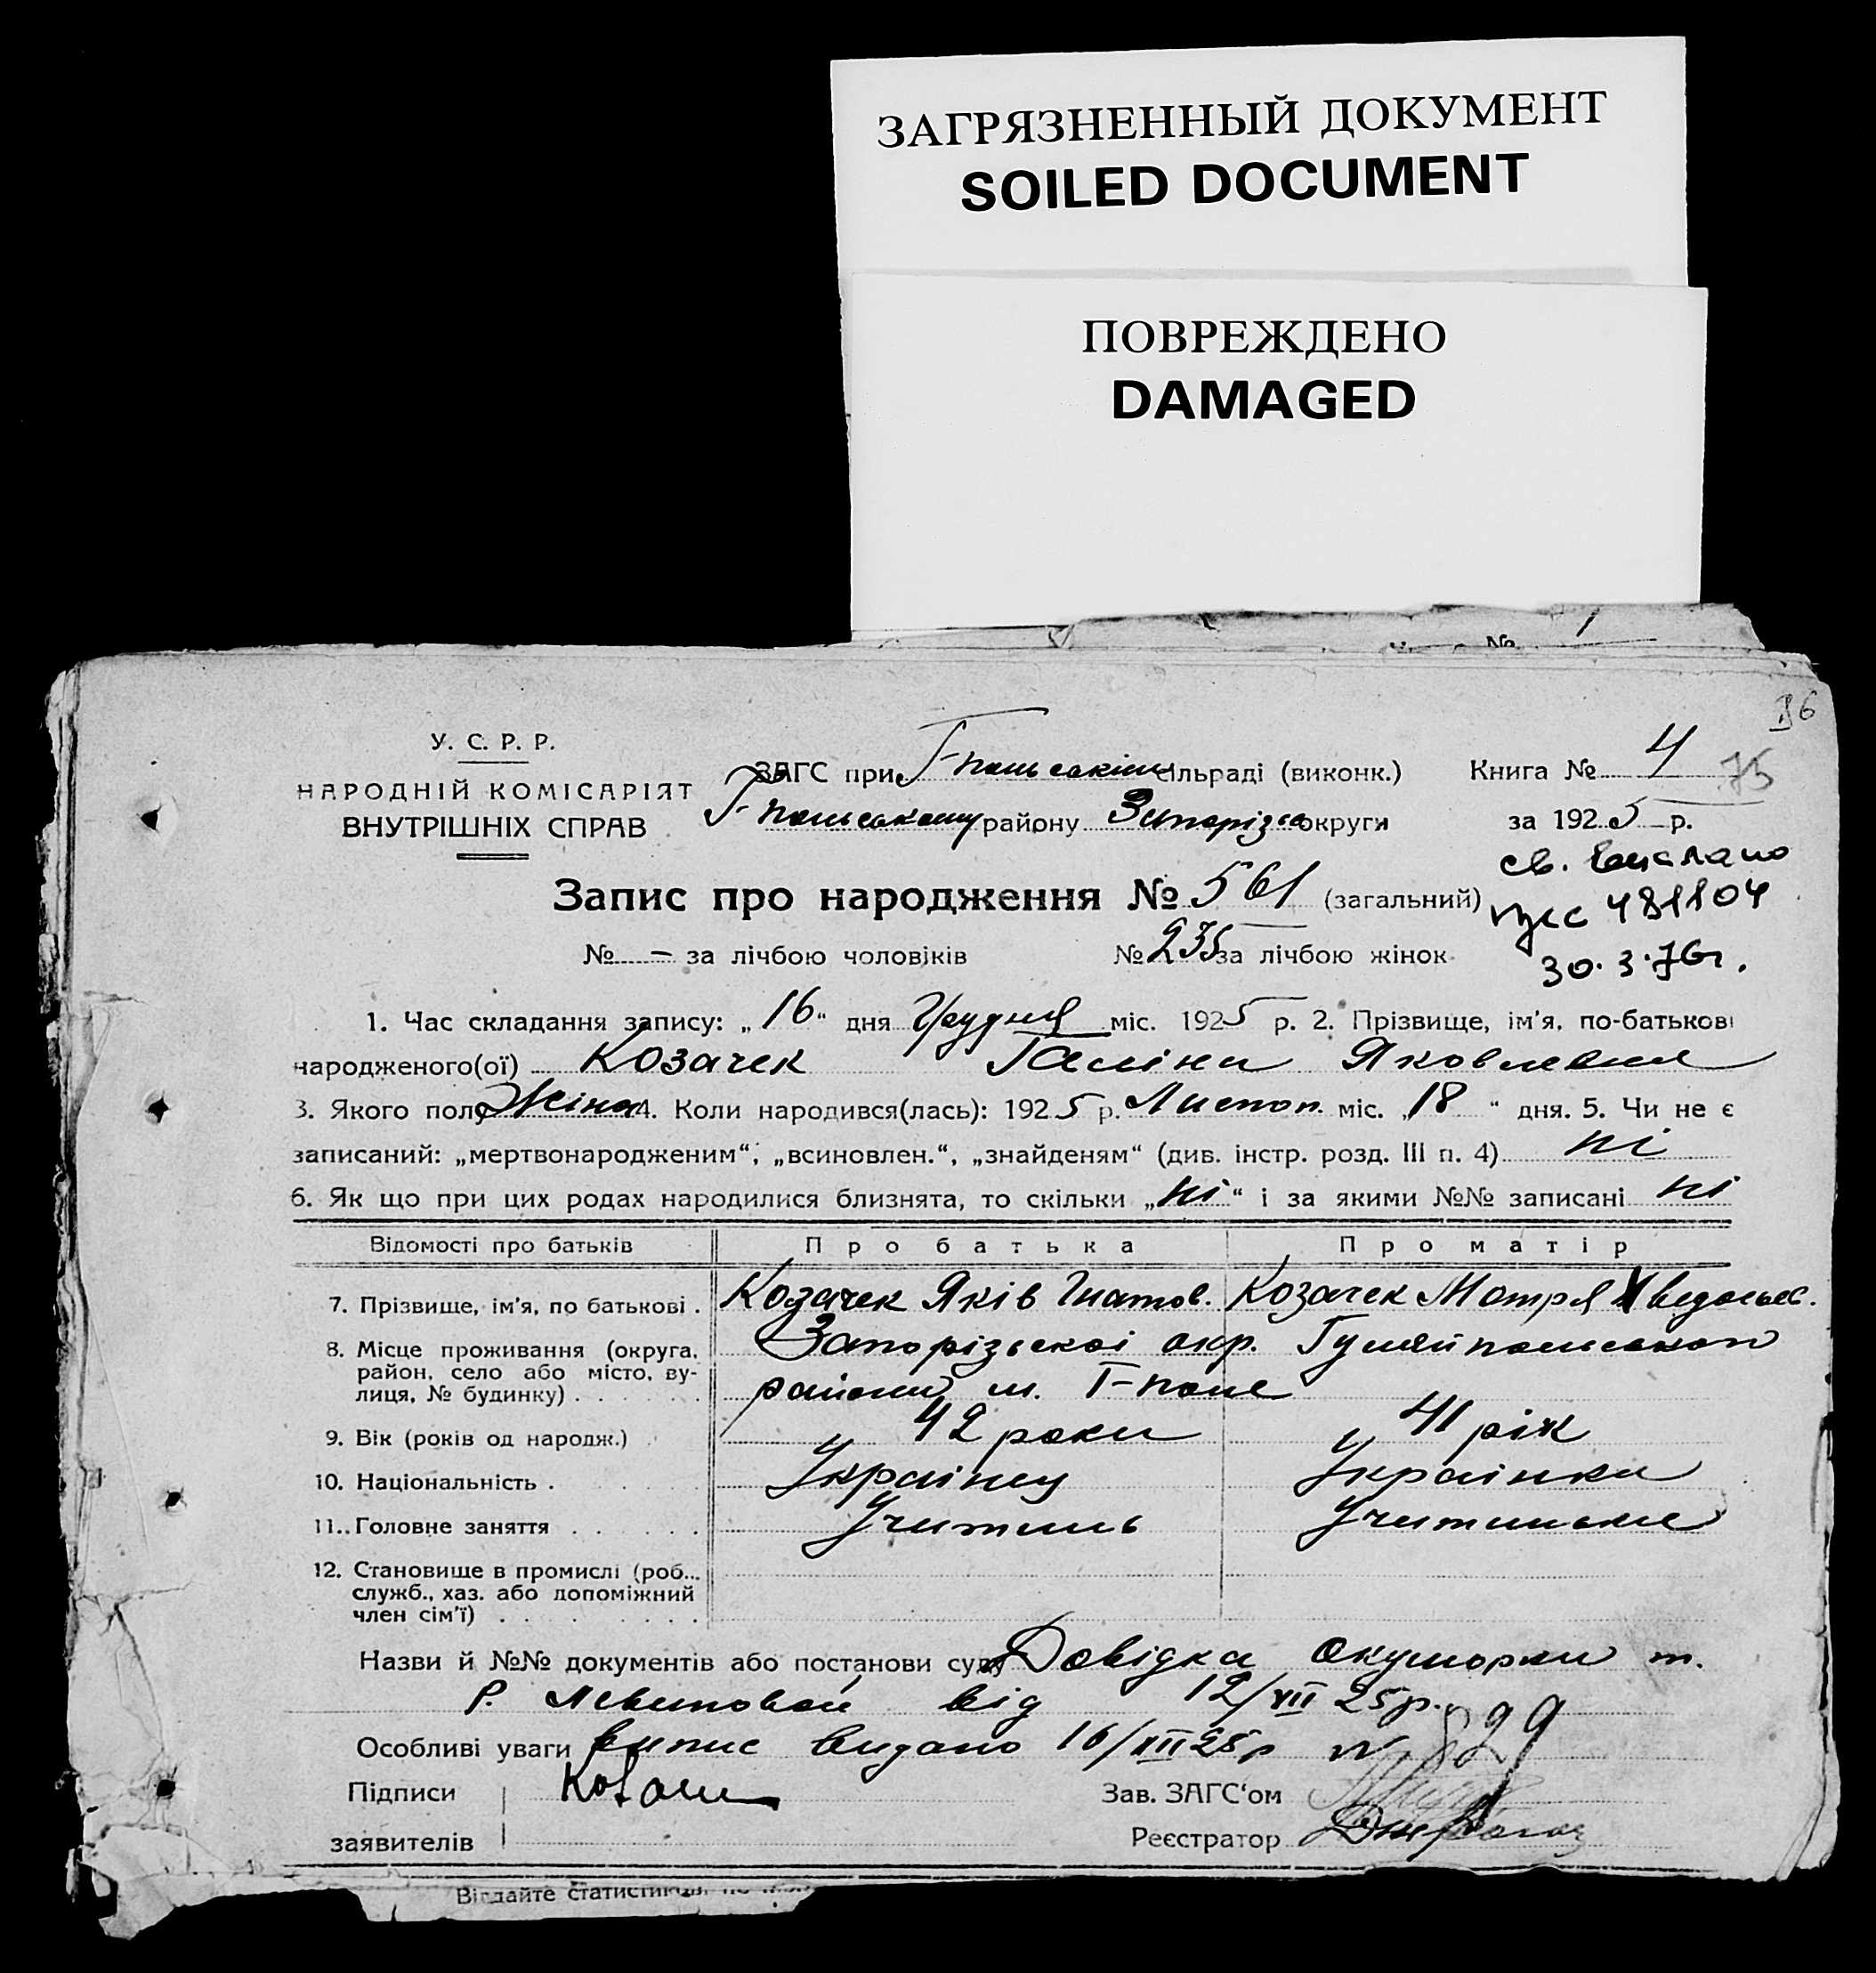 ЗАГРЯЗНЕННЫЙ ДОКУМЕНТ
SOILED DOCUMENT
ПОВРЕЖДЕНО
DAMAGED
№ 1
У. С. Р. Р.
НАРОДНІЙ КОМІСАРІЯТ
ВНУТРІШНІХ СПРАВ
6
ЗАГС при Г-польскіи сільраді (виконк.)
Книга № 4
75
Г-польському району Запорізьк округи
за 1925 р.
св. выслано
481104
30.3.76г.
Запис про народження № 561 (загальний)
№ — за лічбою чоловіків
№ 235 за лічбою жінок
1. Час складання запису: „16“ дня Грудня міс. 1925 р. 2. Прізвище, ім'я, по-батькові
народженого(ої) Козачек Галіна Яковлевна
3. Якого полу Жіноч 4. Коли народився(лась): 1925 р. Листоп. міс. „18“ дня. 5. Чи не є
записаний: „мертвонародженим“, „всиновлен.“, „знайденям“ (див. інстр. розд. III п. 4) ні
6. Як що при цих родах народилися близнята, то скільки „ні“ і за якими №№ записані ні
Відомості про батьків
Про батька
Про матір
7. Прізвище, ім'я, по батькові .
Козачек Яків Гнатов.
Козачек Мотря
8. Місце проживання (округа, район, село або місто, вулиця, № будинку) . . . . . .
Запорізьскої окр. Гуляйпольского
району м. Г-поле
9. Вік (років од народж.) .
42 роки
41 рік
10. Національність . . . . .
Українец
Українка
11. Головне заняття . . . . . .
Учитель
Учителька
12. Становище в промислі (роб...
служб., хаз. або допоміжний
член сім'ї) . . . . . . . .
Назви й №№ документів або постанови суду Довідка акушорки т.
Р. Левитовой від 12/XII 25р.
Особливі уваги випис видано 16/XII 25р № 829
Підписи
заявителів
Зав. ЗАГС‘ом
Реєстратор
Віддайте статистичн.